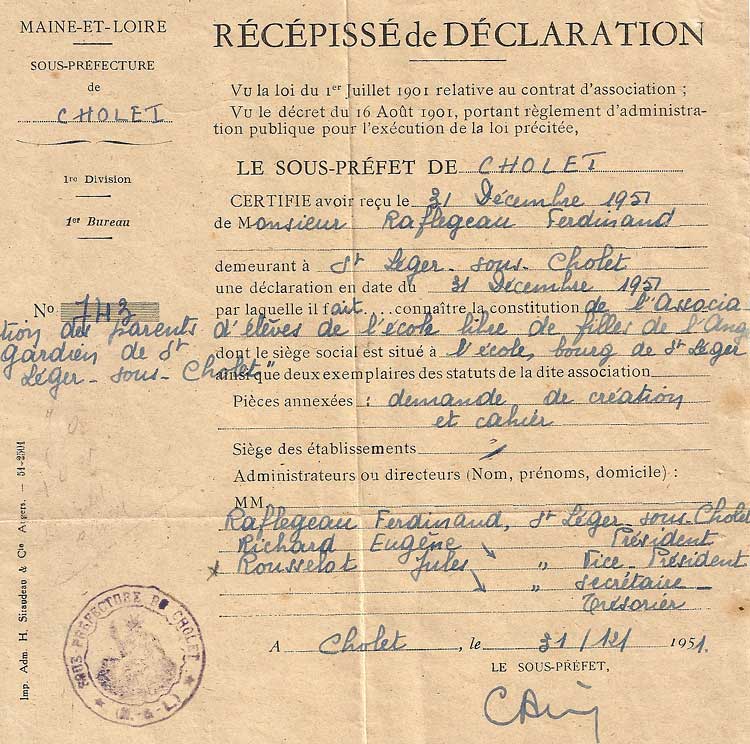 MAINE-ET-LOIRE
SOUS-PREFECTURE
de
CHOLET
1re Division
1er Bureau
No 743
RÉCÉPISSÉ de DÉCLARATION
Vu la loi du 1er Juillet 1901 relative au contrat d'association ;
Vu le décret du 16 Août 1901, portant règlement d'administra-
tion publique pour l'exécution de la loi précitée,
LE SOUS-PRÉFET DE CHOLET
CERTIFIE avoir reçu le 31 Décembre 1951
de Monsieur Raflegeau Ferdinand
demeurant à St Léger-sous-Cholet
une déclaration en date du 31 Décembre 1951
par laquelle il fait....connaître la constitution de l'"Associa
tion des parents d'élèves de l'école libre de filles de l'Ange
gardien de St
Léger-sous-Cholet"
dont le siège social est situé à l'école, bourg de St Léger
ainsi que deux exemplaires des statuts de la dite association
Pièces annexées : demande de création
et cahier
Siège des établissements "
Administrateurs ou directeurs (Nom, prénoms, domicile) :
MM
Raflegeau Ferdinand, St Léger-sous-Cholet
Président
Richard Eugène " Vice-Président
Rousselot Jules " secrétaire-
trésorier
A Cholet, le 31/12/ 1951.
LE SOUS-PRÉFET,
SOUS PREFECTURE DE CHOLET
(M.-&-L.)
Imp. Adm. H. Siraudeau & Cie Angers. — 51-2501